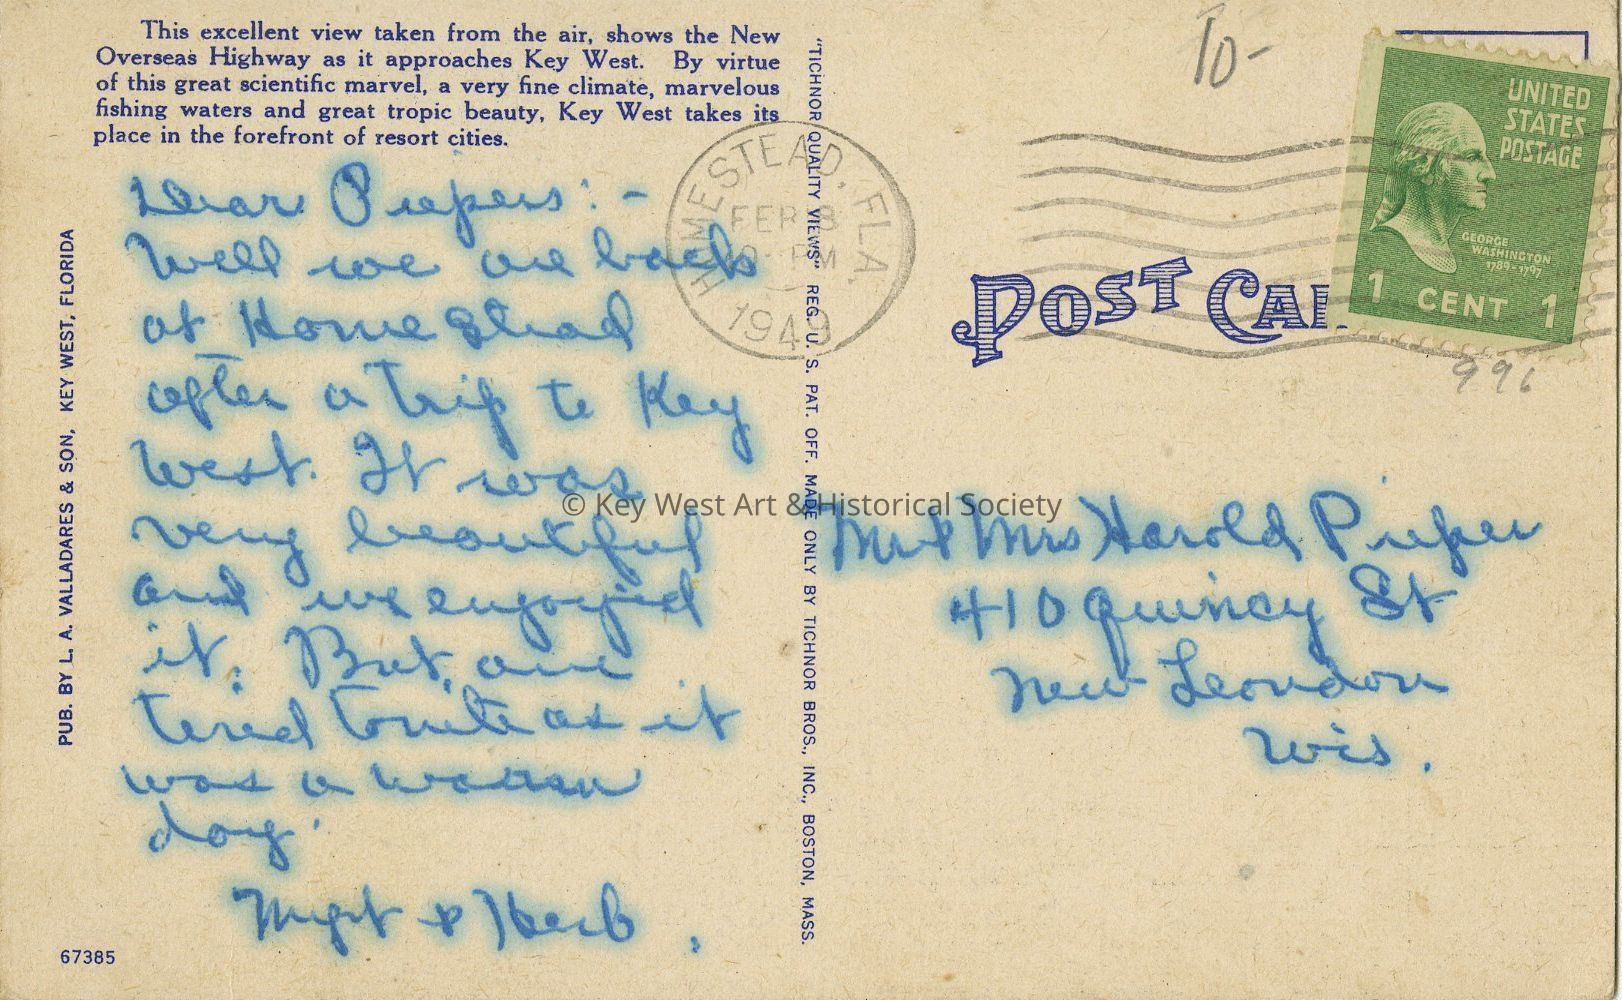 This excellent view taken from the air, shows the New
Overseas Highway as it approaches Key West. By virtue
of this great scientific marvel, a very fine climate, marvelous
fishing waters and great tropic beauty, Key West takes its
place in the forefront of resort cities.
Dear Piepers:-
Well we are back
at Homestead
after a trip to Key
West. It was
very beautiful
and we enjoyed
it. But are
tired tonite as it
was a warm
day.
Myrt & Herb.
67385
PUB. BY L. A. VALLADARES & SON, KEY WEST, FLORIDA
"TICHNOR QUALITY VIEWS" REG. U. S. PAT. OFF. MADE ONLY BY TICHNOR BROS., INC., BOSTON, MASS.
HOMESTEAD, FLA.
FEB 8
PM
1949
10-
UNITED
STATES
POSTAGE
GEORGE
WASHINGTON
1789-1797
1 CENT 1
POST CAR
996
© Key West Art & Historical Society
Mr & Mrs Harold Pieper
410 Quincy St
New London
Wis.